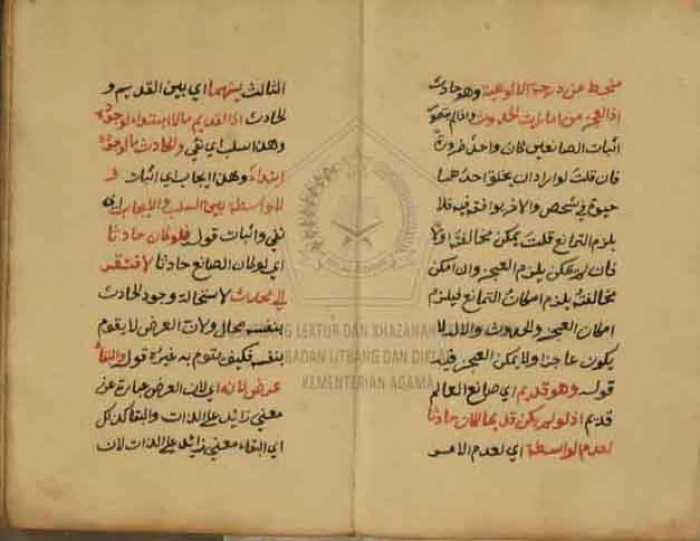 منحط عن درجة الالوهية وهو حادث
اذ العجز من امارات الحدوث واذا لم يتصور
اثبات الصانعين كان واحدا ضرورة
فان قلت لو اراد ان يخلق احدهما
حيوة في شخص والاخر يوافقه فيه فلا
يلزم التمانع قلت يمكن مخالفته او لا
فان لم يمكن يلزم العجز وان امكن
مخالفته يلزم امكان التمانع فيلزم
امكان العجز والحدوث والاله لا
يكون عاجزا ولا يمكن العجز فيه
قوله وهو قديم اي صانع العالم
قديم اذ لو لم يكن قديما لكان حادثا
لعدم الواسطة اي لعدم الامر
الثالث بينهما اي بين القديم و
الحادث اذ القديم ما لا ابتداء لوجوده
وهذا سلب اي نفي والحادث ما لوجوده
ابتداء وهذا ايجاب اي اثبات و
لا واسطة بين السلب والايجاب اي
نفي واثبات قوله فلو كان حادثا
اي لو كان الصانع حادثا لافتقر
الى محدث لاستحالة وجود الحادث
بنفسه محال ولان العرض لا يقوم
بنفسه فكيف يقوم به غيره قوله والبقاء
عرض لانه اي لان العرض عبارة عن
معنى زائد على الذات والبقاء كذلك
اي البقاء معنى زائد على الذات لان
LEKTUR DAN KHAZANAH
BADAN LITBANG DAN DIKLAT
KEMENTERIAN AGAMA